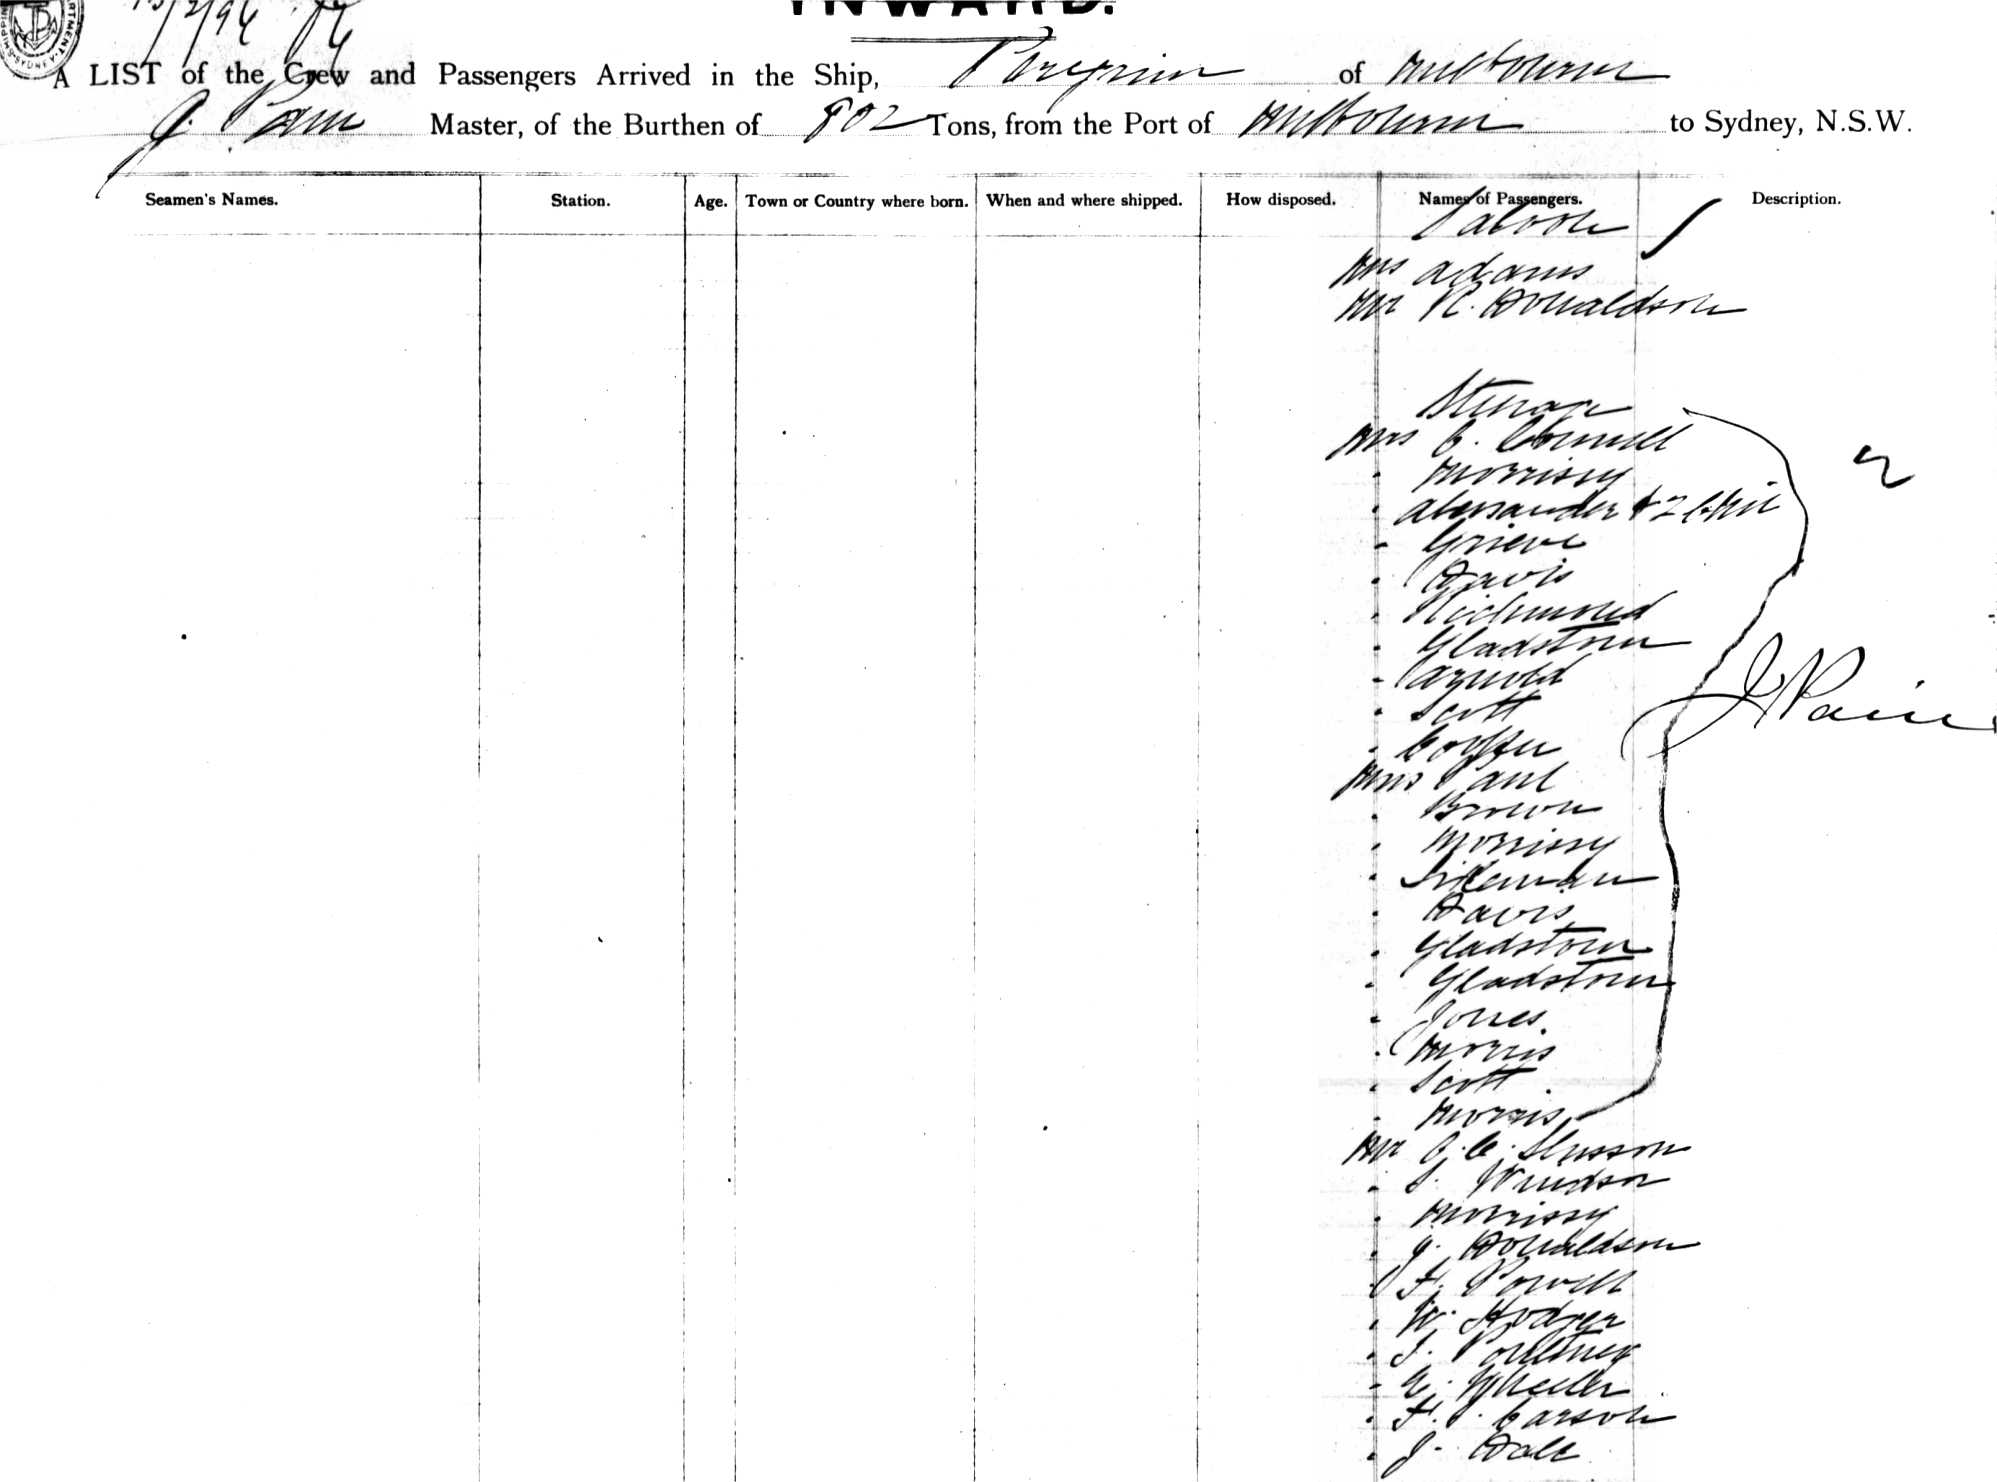 SHIPPIN RTMENT. SYDNEY
15/2/96
INWARD.
A LIST of the Crew and Passengers Arrived in the Ship, Peregrine of Melbourne
J. Pain Master, of the Burthen of 802 Tons, from the Port of Melbourne to Sydney, N.S.W.
Seamen's Names. Station. Age. Town or Country where born. When and where shipped. How disposed. Names of Passengers. Description.
Saloon
Mrs Adams
Mr R. Donaldson
Steerage
Mrs C. Connell
" Morrissy
" Alexander & 2 Chil
" Grieve
" Davis
" Richmond
" Gladstone
" Arnold
" Scott
" 
Miss Paul
" Brown
" Morrissy
" Sideman
" Davis
" Gladstone
" Gladstone
" Jones
" Morris
" Scott
" Morris
J Pain
Mr J. C. Slusson
" S. Windsor
" Morrissy
" J. Donaldson
" F. Powell
" W. Hodger
" J. Poultney
" G. Wheeler
" F. P. Carson
" J. Dale